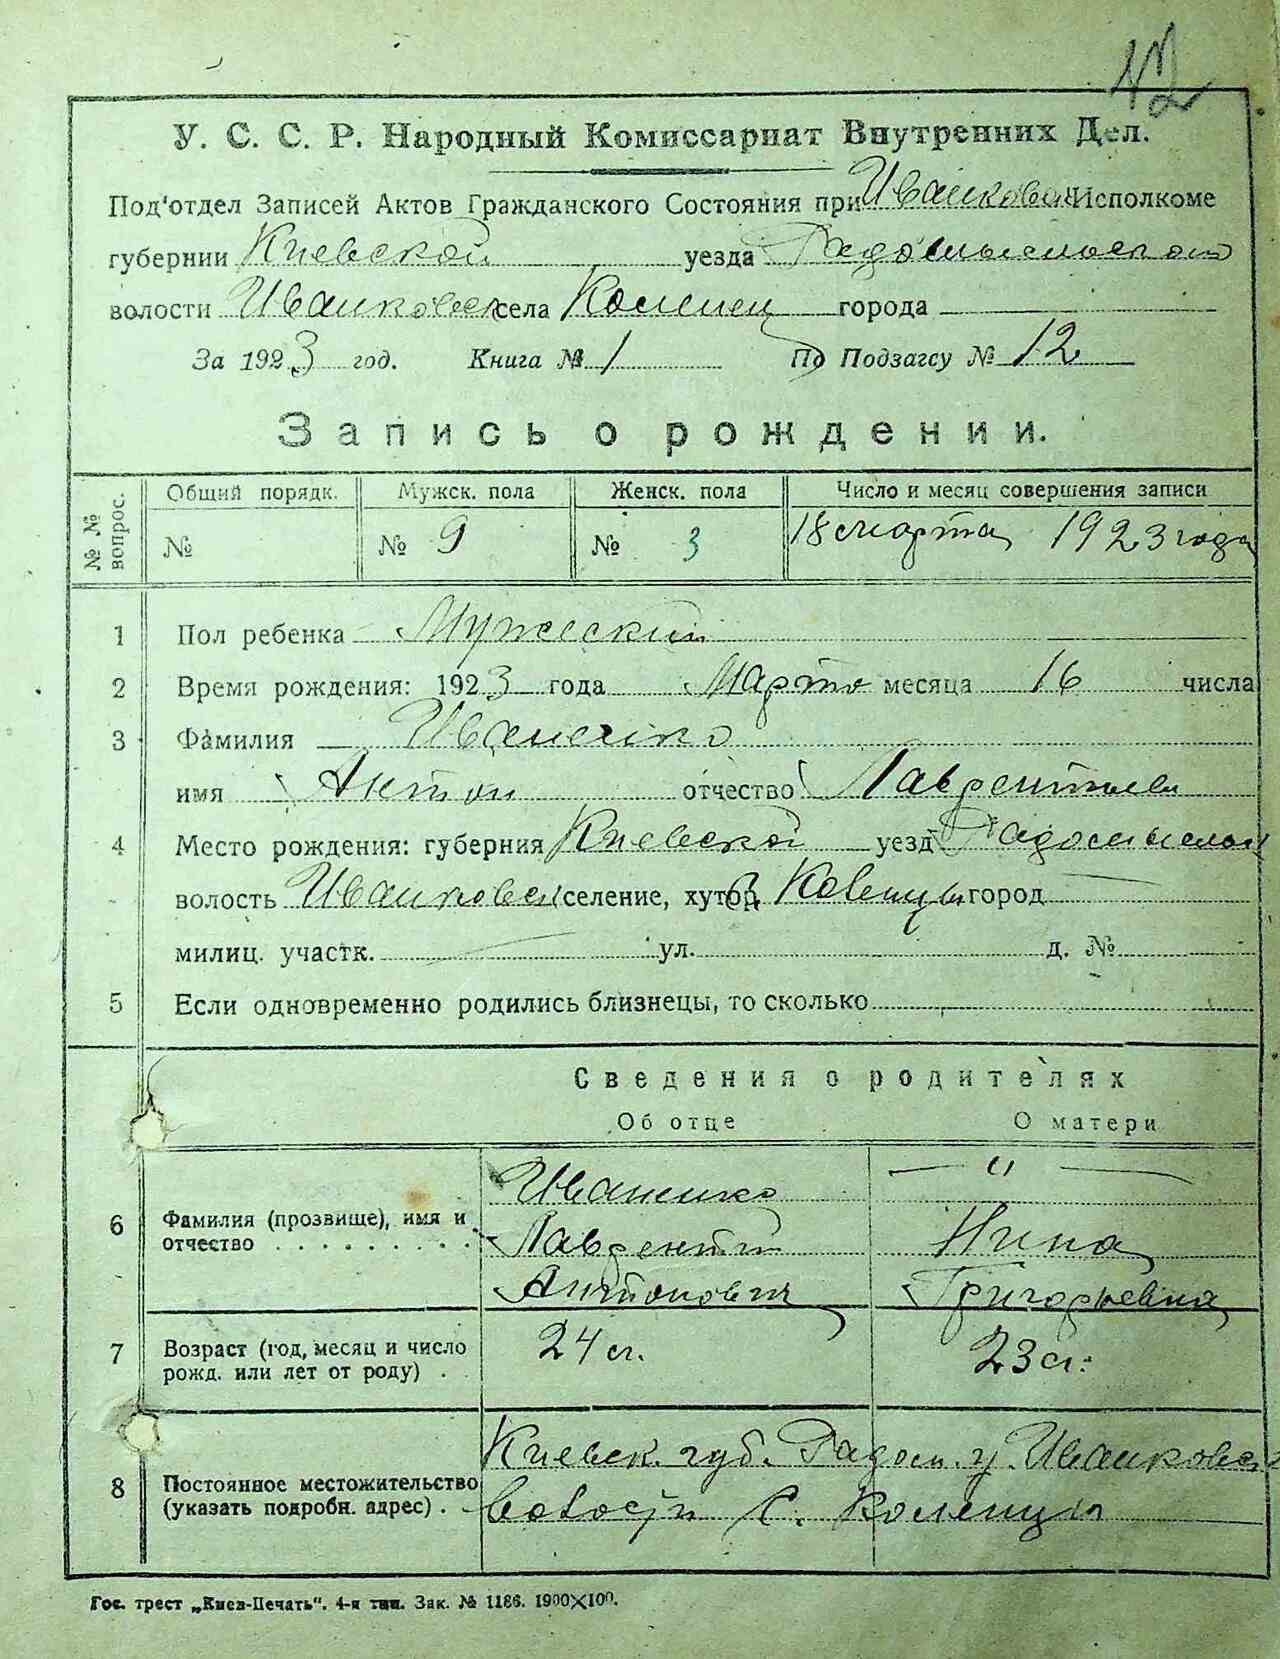 12
У. С. С. Р. Народный Комиссариат Внутренних Дел.
Под'отдел Записей Актов Гражданского Состояния при Иванковск Исполкоме
губернии Киевской уезда Радомысльского
волости Иванковск села Коленец города
За 1923 год. Книга № 1 По Подзагсу № 12
Запись о рождении.
№ № вопрос. Общий порядк. Мужск. пола Женск. пола Число и месяц совершения записи
№ № 9 № 3 18 марта 1923 года
1 Пол ребенка Мужеский
2 Время рождения: 1923 года Марта месяца 16 числа
3 Фамилия Иваненко
имя Антон отчество Лаврентьев
4 Место рождения: губерния Киевской уезд Радомысльск
волость Иванковск селение, хутор город
милиц. участк. ул. д. №
5 Если одновременно родились близнецы, то сколько
Сведения о родителях
Об отце О матери
Иваненко — " —
6 Фамилия (прозвище), имя и отчество Лаврентий Нина
Антонович Григорьевна
7 Возраст (год, месяц и число рожд. или лет от роду) 24 л. 23 л.
Киевск. губ. Радом. у. Иванковск
8 Постоянное местожительство (указать подробн. адрес) волости с. Коленцы
Гос. трест „Киев-Печать“. 4-я тип. Зак. № 1186. 1900×100.